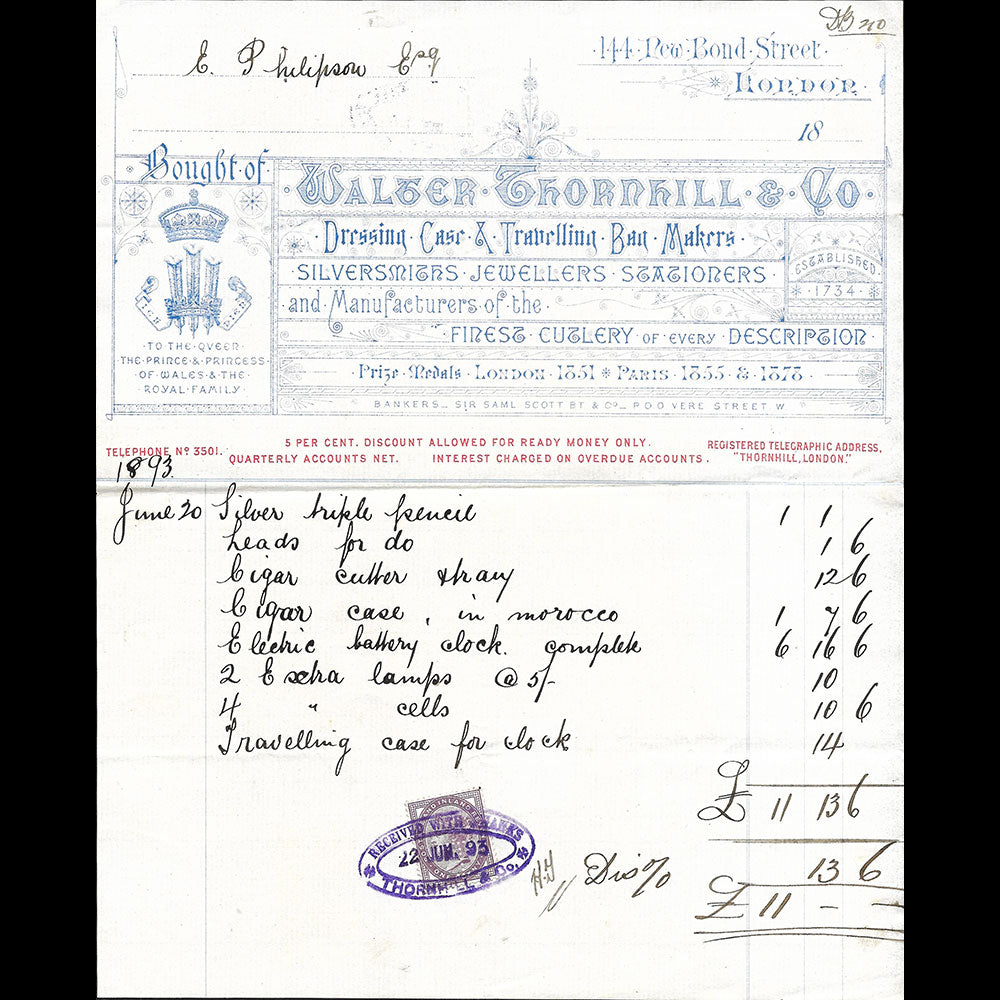 DB 210
E. Philipson Esq
144 New Bond Street
London
18
Bought of
Walter Thornhill & Co
Dressing Case & Travelling Bag Makers
Silversmiths Jewellers Stationers
and Manufacturers of the
Finest Cutlery of every Description
Prize Medals London 1851 Paris 1855 & 1878
Bankers_ Sir Saml Scott Bt & Co_
Established
1734
To the Queen
The Prince & Princess
of Wales & the
Royal Family
TELEPHONE No 3501.
5 PER CENT. DISCOUNT ALLOWED FOR READY MONEY ONLY.
QUARTERLY ACCOUNTS NET. INTEREST CHARGED ON OVERDUE ACCOUNTS.
REGISTERED TELEGRAPHIC ADDRESS,
"THORNHILL, LONDON."
1893
June 20 Silver triple pencil 1 1
Leads for do 1 6
Cigar cutter & tray 12 6
Cigar case, in morocco 1 7 6
Electric battery clock. complete 6 16 6
2 Extra lamps @ 5/- 10
4 " cells 10 6
Travelling case for clock 14
£ 11 13 6
Dis% 13 6
£ 11 - -
RECEIVED WITH THANKS
22 JUN. 93
THORNHILL & Co.
H.G